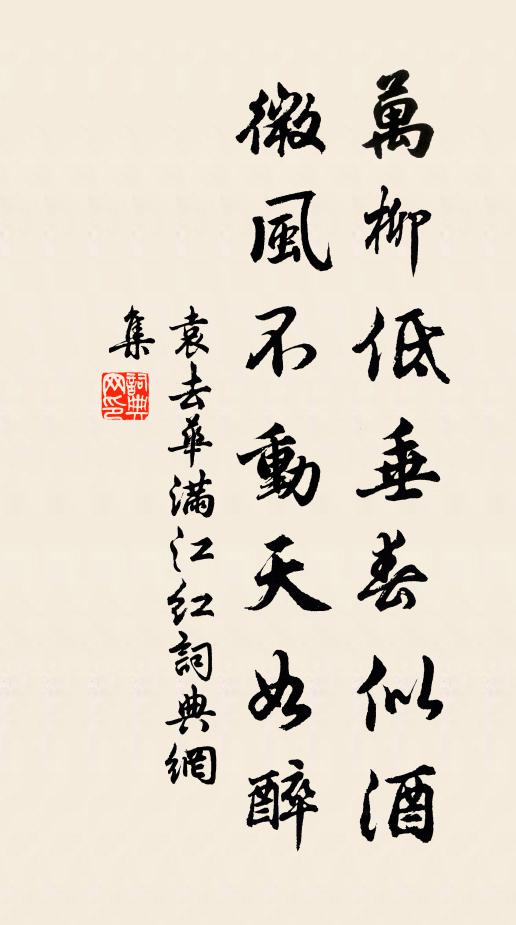 萬柳低垂春似酒
微風不動天如醉
袁去華滿江紅詞典網
集
詞典
网印